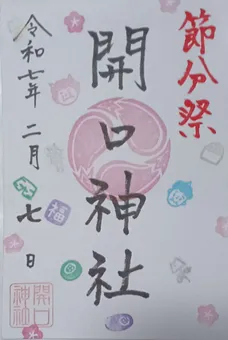 節分祭
開口神社
令和七年二月七日
福
開口
神社